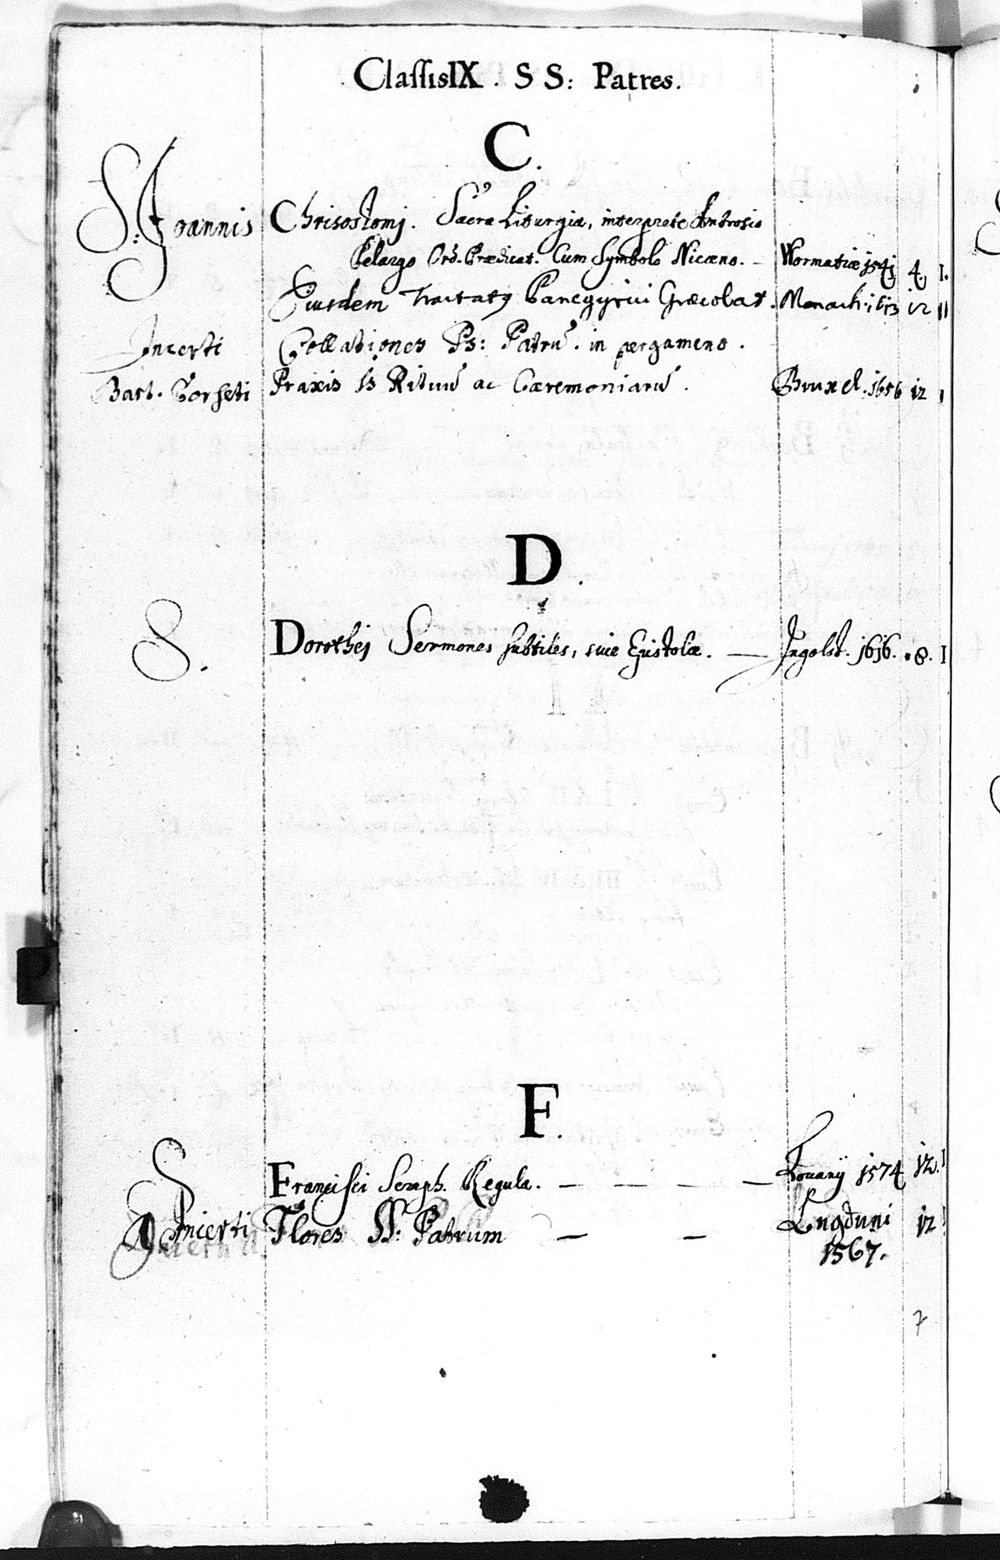 Classis IX. SS: Patres.
C.
S. Joannis Chrisostomj. Sacra Liturgia, interprete Ambrosio
Pelargo Ord. Prædicat. Cum Symbolo Nicæno. — Wormatiæ 1541 4 I.
Eiusdem Tractatq Panegyrici Græcolat. Monach. 1613 12 II
Incerti Collationes Ps: Patrū. in pergameno.
Bart. Praxis Rituū ac Cæremoniarū. Bruxel. 1656 12 I
D.
S. Dorothej Sermones subtiles, sive Epistolæ. — Ingolst. 1616. .8. I
F.
S Francisci Seraph. Regula. — — — — Lovanij 1574 12. I
Incerti Flores SS: Patrum — — Lugduni 12 I
1567.
7